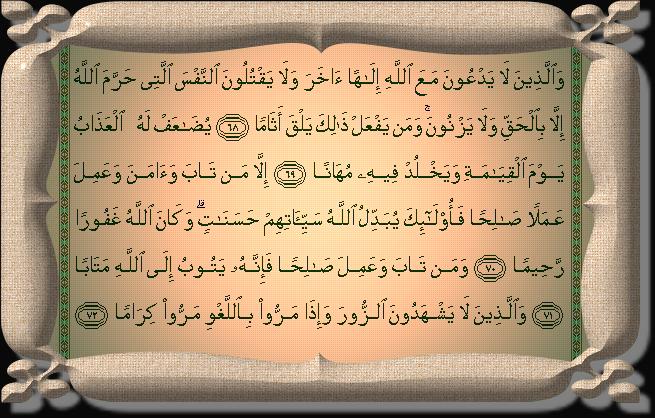 وَٱلَّذِينَ لَا يَدْعُونَ مَعَ ٱللَّهِ إِلَـٰهًا ءَاخَرَ وَلَا يَقْتُلُونَ ٱلنَّفْسَ ٱلَّتِى حَرَّمَ ٱللَّهُ
إِلَّا بِٱلْحَقِّ وَلَا يَزْنُونَ ۚ وَمَن يَفْعَلْ ذَٰلِكَ يَلْقَ أَثَامًا ٦٨ يُضَـٰعَفْ لَهُ ٱلْعَذَابُ
يَوْمَ ٱلْقِيَـٰمَةِ وَيَخْلُدْ فِيهِۦ مُهَانًا ٦٩ إِلَّا مَن تَابَ وَءَامَنَ وَعَمِلَ
عَمَلًا صَـٰلِحًا فَأُو۟لَـٰٓئِكَ يُبَدِّلُ ٱللَّهُ سَيِّـَٔاتِهِمْ حَسَنَـٰتٍ ۗ وَكَانَ ٱللَّهُ غَفُورًا
رَّحِيمًا ٧٠ وَمَن تَابَ وَعَمِلَ صَـٰلِحًا فَإِنَّهُۥ يَتُوبُ إِلَى ٱللَّهِ مَتَابًا
٧١ وَٱلَّذِينَ لَا يَشْهَدُونَ ٱلزُّورَ وَإِذَا مَرُّوا۟ بِٱللَّغْوِ مَرُّوا۟ كِرَامًا ٧٢